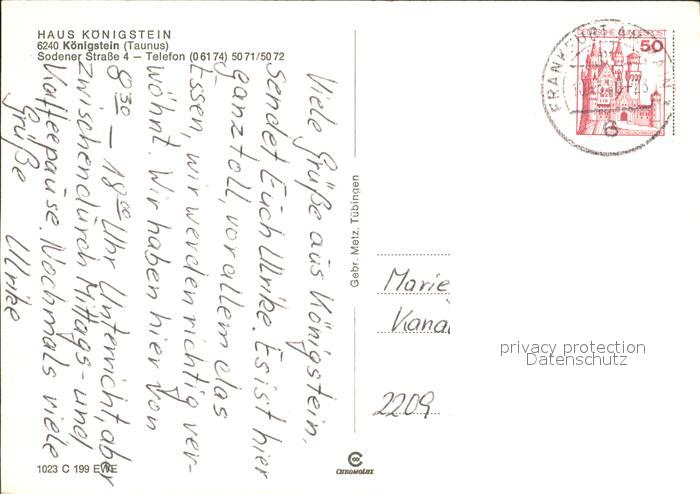 HAUS KÖNIGSTEIN
6240 Königstein (Taunus)
Sodener Straße 4 – Telefon (0 61 74) 50 71/50 72
Viele Grüße aus Königstein,
sendet Euch Ulrike. Es ist hier
ganz toll, vor allem das
Essen, wir werden richtig ver-
wöhnt. Wir haben hier von
8³⁰ – 18⁰⁰ Uhr Unterricht, aber
zwischendurch Mittags- und
Kaffeepause. Nochmals viele
Grüße
Ulrike
1023 C 199 EWE
Gebr. Metz, Tübingen
CHROMOLUX
DEUTSCHE BUNDESPOST
50
FRANKFURT AM MAIN
6
Marie
Kana
2209
privacy protection
Datenschutz